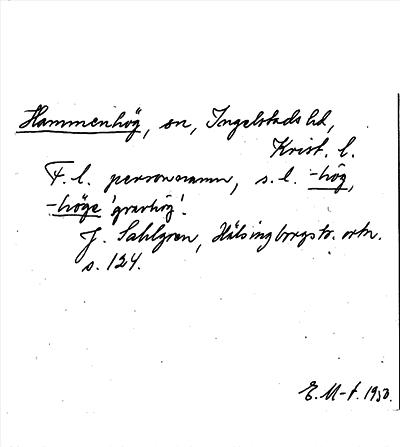 Hammenhög, sn, Ingelstads hd,
Krist. l.
F. l. personnamn, s. l. -hög,
-höge 'gravhög'.
J. Sahlgren, Hälsingborgstr. ortn.
s. 124.
E. M-t. 1950.